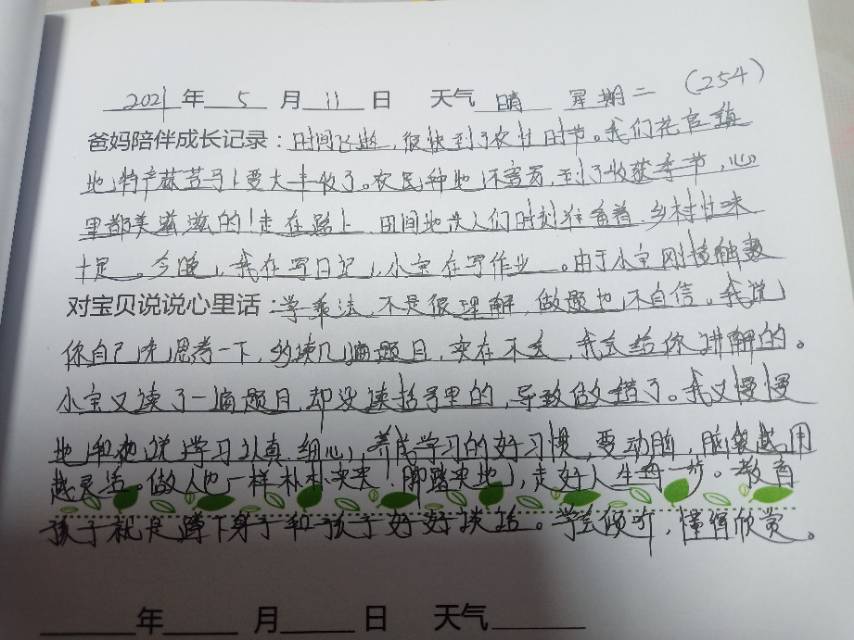 2021 年 5 月 11 日 天气 晴 星期二 (254)
爸妈陪伴成长记录：时间飞逝，很快到了农忙时节。我们花官镇
地特产蒜苔马上要大丰收了。农民种地不容易，到了收获季节，心
里都美滋滋的！走在路上，田间地头人们时刻忙着，乡村味
十足。今晚，我在写日记，小宝在写作业。由于小宝刚接触数
对宝贝说说心里话：学乘法，不是很理解，做题也不自信。我说
你自己先思考一下，多读几遍题目，实在不会，我会给你讲解的。
小宝又读了一遍题目，却没读括号里的，导致做错了。我又慢慢
地和他说学习认真、细心，养成学习的好习惯，要动脑，脑袋越用
越灵活。做人也一样朴朴实实，脚踏实地，走好人生每一步。教育
孩子就是蹲下身子和孩子好好谈话。学会倾听，懂得欣赏。
年 月 日 天气